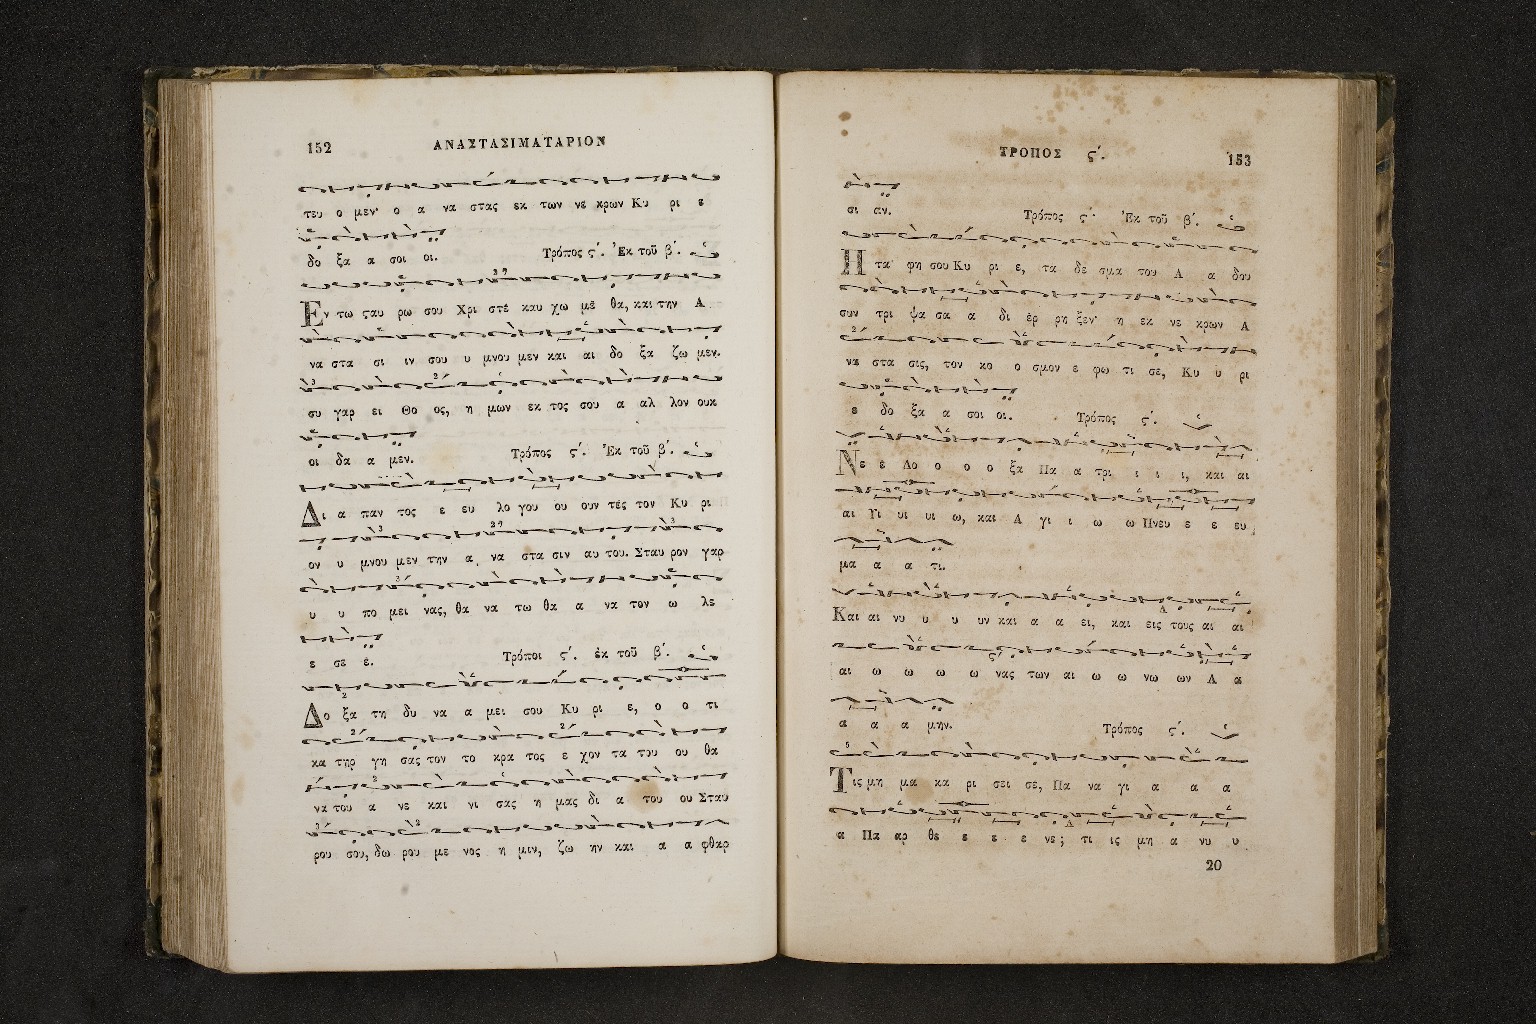 152 ΑΝΑΣΤΑΣΙΜΑΤΑΡΙΟΝ
τευ ο μεν· ο α να στας εκ των νε κρων Κυ ρι ε
δο ξα α σοι οι. Τρόπος ς΄. Ἐκ τοῦ β΄.
Εν τω ςαυ ρω σου Χρι στέ καυ χω με θα, και την Α
να στα σι ιν σου υ μνου μεν και αι δο ξα ζω μεν.
συ γαρ ει Θο ος, η μων εκ τος σου α αλ λον ουκ
οι δα α μεν. Τρόπος ς΄. Ἐκ τοῦ β΄.
Δι α παν τος ε ευ λο γου ου ουν τές τον Κυ ρι
ον υ μνου μεν την α να στα σιν αυ του. Σταυ ρον γαρ
υ υ πο μει νας, θα να τω θα α να τον ω λε
ε σε ε. Τρόποι ς΄. ἐκ τοῦ β΄.
Δο ξα τη δυ να α μει σου Κυ ρι ε, ο ο τι
κα τηρ γη σας τον το κρα τος ε χον τα του ου θα
να του α νε και νι σας η μας δι α του ου Σταυ
ρου σου, δω ρου με νος η μιν, ζω ην και α α φθαρ
ΤΡΟΠΟΣ ς΄. 153
σι αν. Τρόπος ς΄· Ἐκ τοῦ β΄.
Η τα φη σου Κυ ρι ε, τα δε σμα του Α α δου
συν τρι ψα σα α δι έρ ρη ξεν· η εκ νε κρων Α
να στα σις, τον κο ο σμον ε φω τι σε, Κυ υ ρι
ε δο ξα α σοι οι. Τρόπος ς΄.
Νε ε Δο ο ο ο ξα Πα α τρι ι ι ι, και αι
αι Υι υι υι ω, και Α γι ι ω ω Πνευ ε ε ευ
μα α α τι.
Και αι νυ υ υ υν και α α ει, και εις τους αι αι
αι ω ω ω ω νας των αι ω ω νω ων Α α
α α α μην. Τρόπος ς΄.
Τις μη μα κα ρι σει σε, Πα να γι α α α
α Πα αρ θε ε ε ε νε; τι ις μη α νυ υ
20